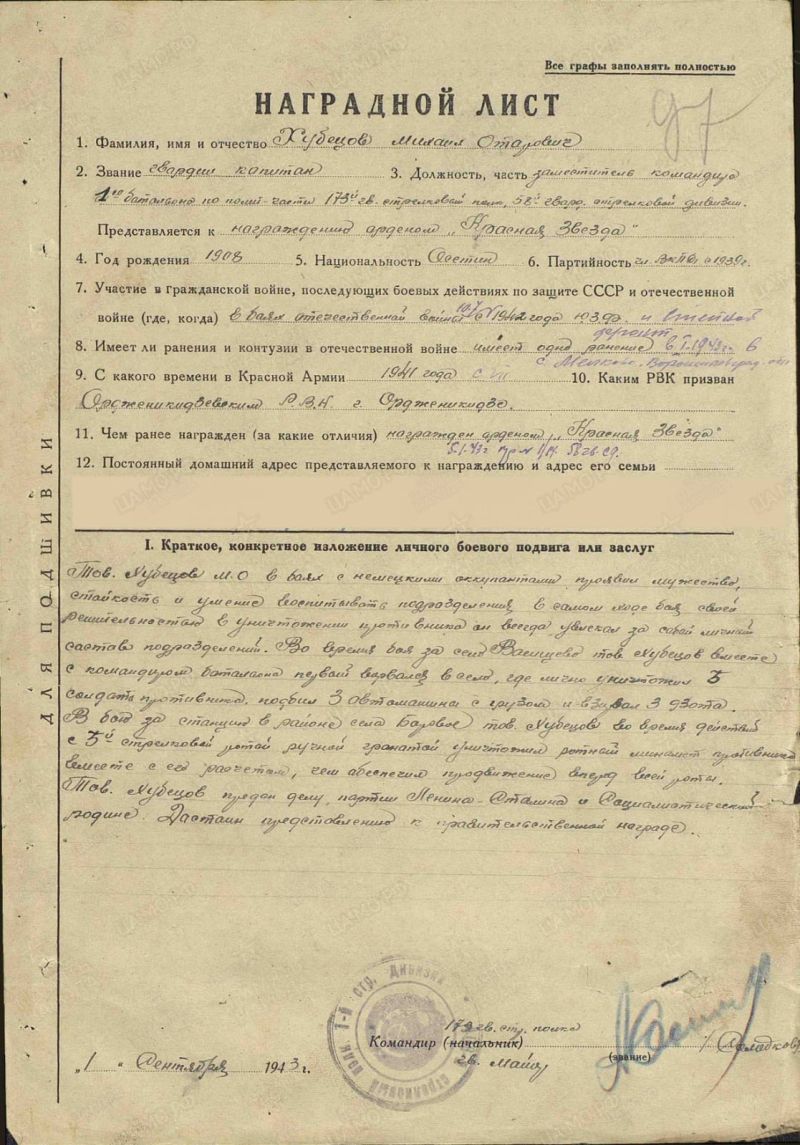 Все графы заполнять полностью
97
НАГРАДНОЙ ЛИСТ
1. Фамилия, имя и отчество Хубецов Михаил Отарович
2. Звание гвардии капитан 3. Должность, часть заместитель командира
1го батальона по полит-части 173й гв. стрелковый полк, 58й гвард. стрелковой дивизии.
Представляется к награждению орденом „Красная Звезда"
4. Год рождения 1908 5. Национальность Осетин 6. Партийность чл. ВКП(б) с 1939г.
7. Участие в гражданской войне, последующих боевых действиях по защите СССР и отечественной
войне (где, когда) в боях отечественной войны с 1942 года ЮЗФ. и Степной
фронт.
8. Имеет ли ранения и контузии в отечественной войне имеет одно ранение 6.I.1943г. в
9. С какого времени в Красной Армии 1941 года с VII 10. Каким РВК призван
Орджоникидзевским Р.В.К г. Орджоникидзе.
11. Чем ранее награжден (за какие отличия) награжден орденом „Красная Звезда"
5.1.43г пр № 1/н. 58 гв. сд.
12. Постоянный домашний адрес представляемого к награждению и адрес его семьи
I. Краткое, конкретное изложение личного боевого подвига или заслуг
Тов. Хубецов М.О в боях с немецкими оккупантами проявил мужество,
стойкость и умение воспитывать подразделения в самом ходе боя своей
решительностью в уничтожении противника он всегда увлекал за собой личный
состав подразделений. Во время боя за село Васищево тов. Хубецов вместе
с командиром батальона первый ворвался в село, где лично уничтожил 5
солдат противника, подбил 3 автомашины с грузом и взорвал 3 дзота.
В бою за станцию в районе села Боровое тов. Хубецов во время действий
с 5й стрелковой ротой ручной гранатой уничтожил ротный миномет противника
вместе с его расчетом, чем обеспечил продвижение вперед всей роты.
Тов. Хубецов предан делу партии Ленина-Сталина и Социалистической
родине. Достоин представлению к правительственной награде.
173 гв. стр. полка
Командир (начальник)
гв. Майор
(звание)
„1" Сентября 1943 г.
ДЛЯ ПОДШИВКИ